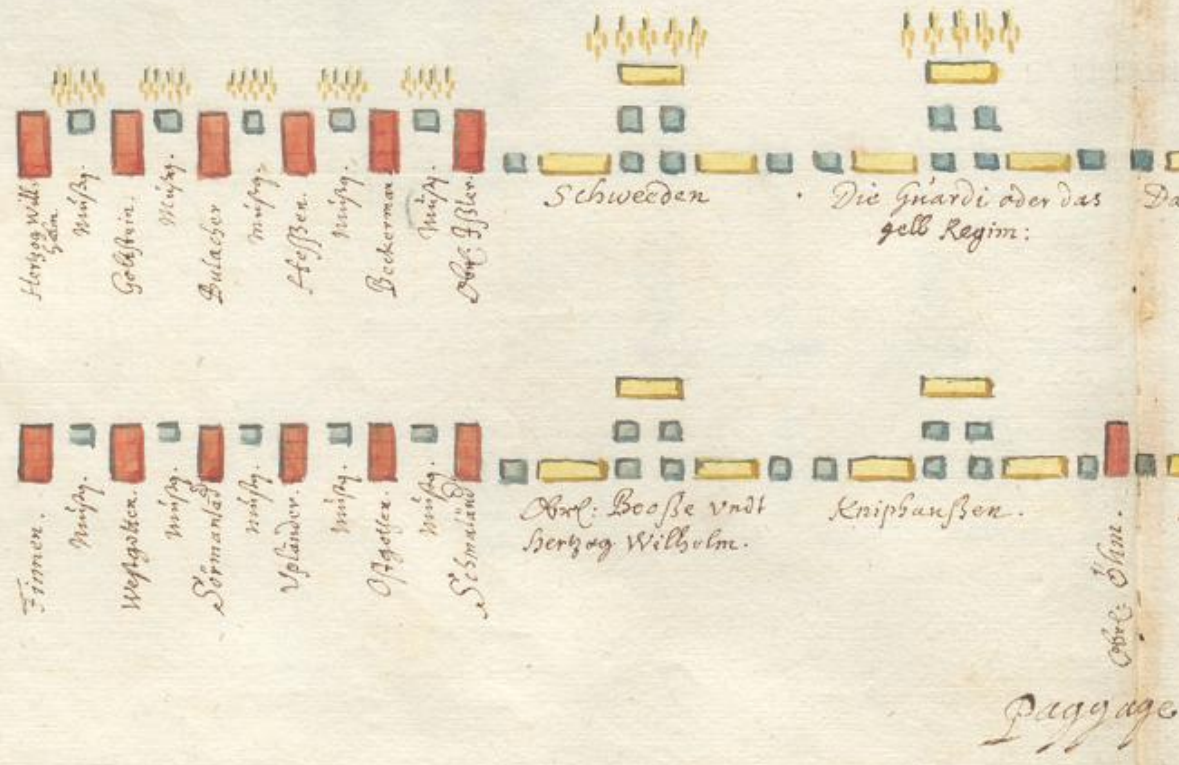 Hertzog Will:
halm
Mußq.
Goltstein.
Mußq.
Bulacher
Mußq.
Heßßen.
Mußq.
Beckerman.
Mußq.
Obrl: Ißler.
Schweeden
Die Guardi oder das
gelb Regim:
Da
Finnen.
Mußq.
Westgotten.
Mußq.
Sörmanländ
Mußq.
Vpländer.
Mußq.
Ostgotten.
Mußq.
Schmaländ
Obrl: Booße vndt
Hertzog Wilhelm.
Kniphaußen.
Obrl: Öhm.
Paggage